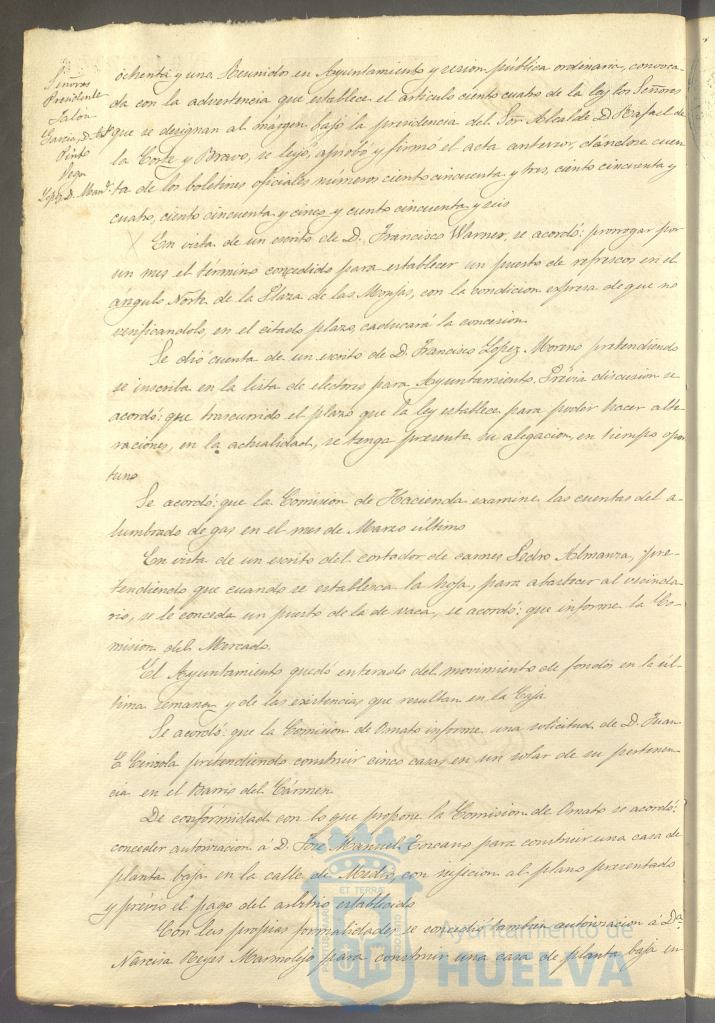 Señores
Presidente
Jalon
Garcia, D. Ant.º
Pinto
Vega
Lopez D. Man.l
ochenta y uno. Reunidos en Ayuntamiento y sesion pública ordinaria, convoca-
da con la advertencia que establece el artículo ciento cuatro de la ley los Señores
que se designan al márgen bajo la presidencia del Sor. Alcalde D. Rafael de
la Corte y Bravo, se leyó, aprobó y firmó el acta anterior, dándose cuen-
ta de los boletines oficiales números ciento cincuenta y tres, ciento cincuenta y
cuatro, ciento cincuenta y cinco y ciento cincuenta y seis
En vista de un escrito de D. Francisco Warner, se acordó: prorrogar por
un mes el término concedido para establecer un puesto de refrescos en el
ángulo Norte de la Plaza de las Monjas, con la condicion expresa de que no
verificandolo, en el citado plazo, caducará la concesion
Se dió cuenta de un escrito de D. Francisco Lopez Moreno pretendiendo
se inscriba en la lista de electores para Ayuntamiento. Prévia discusion se
acordó: que trascurrido el plazo que la ley establece para poder hacer alte-
raciones, en la actualidad, se tenga presente su alegacion, en tiempo opor
tuno
Se acordó: que la Comision de Hacienda examine las cuentas del a-
lumbrado de gas en el mes de Marzo último
En vista de un escrito del cortador de carnes Pedro Almanza, pre-
tendiendo que cuando se establezca la hoja, para abastecer al vecinda-
rio, se le conceda un puesto de la de vaca, se acordó: que informe la Co-
mision del Mercado.
El Ayuntamiento quedó enterado del movimiento de fondos en la úl-
tima semana y de las existencias que resultan en la Caja
Se acordó: que la Comision de Ornato informe una solicitud de D. Juan
pretendiendo construir cinco casas en un solar de su pertenen-
cia en el Barrio del Cármen
De conformidad con lo que propone la Comision de Ornato se acordó:
conceder autorizacion á D. José Manuel Toscano para construir una casa de
planta baja en la calle de con sujecion al plano presentado
y prévio el pago del arbitrio establecido
Con las propias formalidades se concedió tambien autorizacion á D.a
Narcisa Reyes Marmolejo para construir una casa de planta baja en
ET TERRAE
Ayuntamiento de
HUELVA